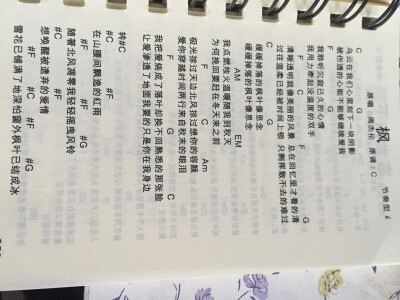 枫
节奏型 4
原唱：周杰伦 原调：C
C F G
乌云在我们心里搁下一块阴影
被伤透的心能不能够继续爱我
C F G
我聆听沉寂已久的心情
我用力牵起没温度的双手
清晰透明就像美丽的风景 总在回忆里才看的清
过往温柔已经被时间上锁 只剩挥散不去的难过
F G C
缓缓掉落的枫叶像思念
缓缓掉落的枫叶像思念
AM EM
我点燃烛火温暖 秋天
为何挽回要赶在冬天来之前
F C Am
极光掠过天边北风掠过想你的容颜
爱你穿越时间两行来自秋末的眼泪
F G C
我把爱烧成了落叶却换不回熟悉的那张脸
让爱渗透了地面我要的只是你在我身边
转#C
#C #F #G
在山腰间飘逸的红雨
#C #F #G
随着北风凋零我轻轻摇曳风铃
#C #F #G
想唤醒被遗弃的爱情
#F #C #F #G
雪花已铺满了地深怕窗外枫叶已结成冰